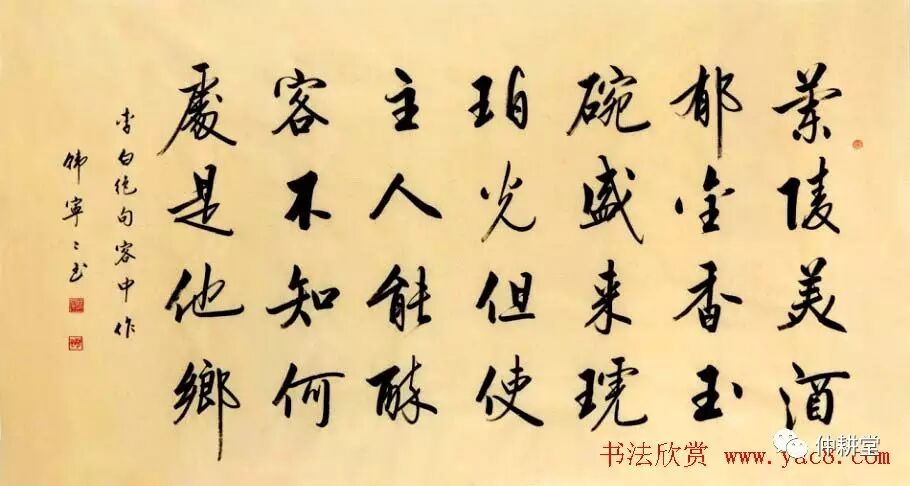 蘭陵美酒
郁金香玉
碗盛来琥
珀光但使
主人能醉
客不知何
處是他鄉
李白绝句客中作
韩寧〻书
书法欣赏 www.yac8.com
仲耕堂